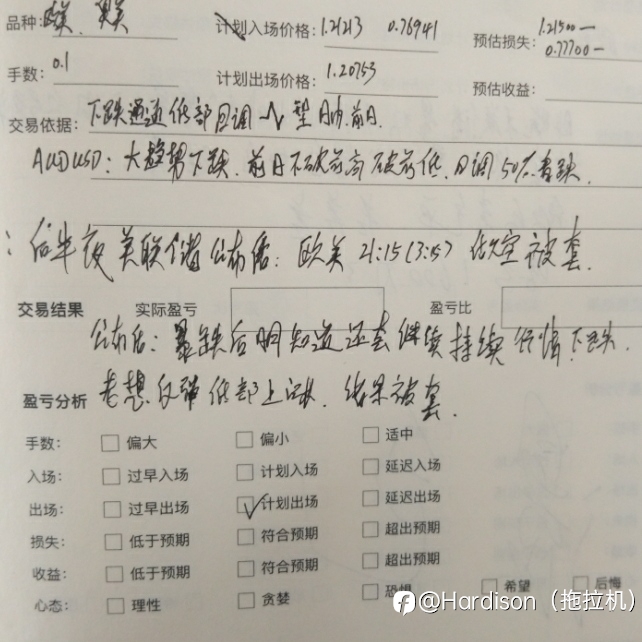 品种: 欧美、澳美 计划入场价格: 1.21213 0.76941 预估损失: 1.21500— 0.77700—
手数: 0.1 计划出场价格: 1.20753 预估收益:
交易依据: 下跌通道低部日调 型 前日.
AUDUSD: 大趋势下跌. 前日不破前高破前低. 日调50%看跌.
: 后半夜美联储公布后: 欧美 21:15 (3:45) 做空被套.
交易结果 实际盈亏 盈亏比
公布后: 暴跌后明知道还会继续持续行情下跌.
盈亏分析 老想反弹低部上 结果被套.
手数: 偏大 偏小 适中
入场: 过早入场 计划入场 延迟入场
出场: 过早出场 计划出场 延迟出场
损失: 低于预期 符合预期 超出预期
收益: 低于预期 符合预期 超出预期
心态: 理性 贪婪 恐惧 希望 后悔
@Hardison（拖拉机）